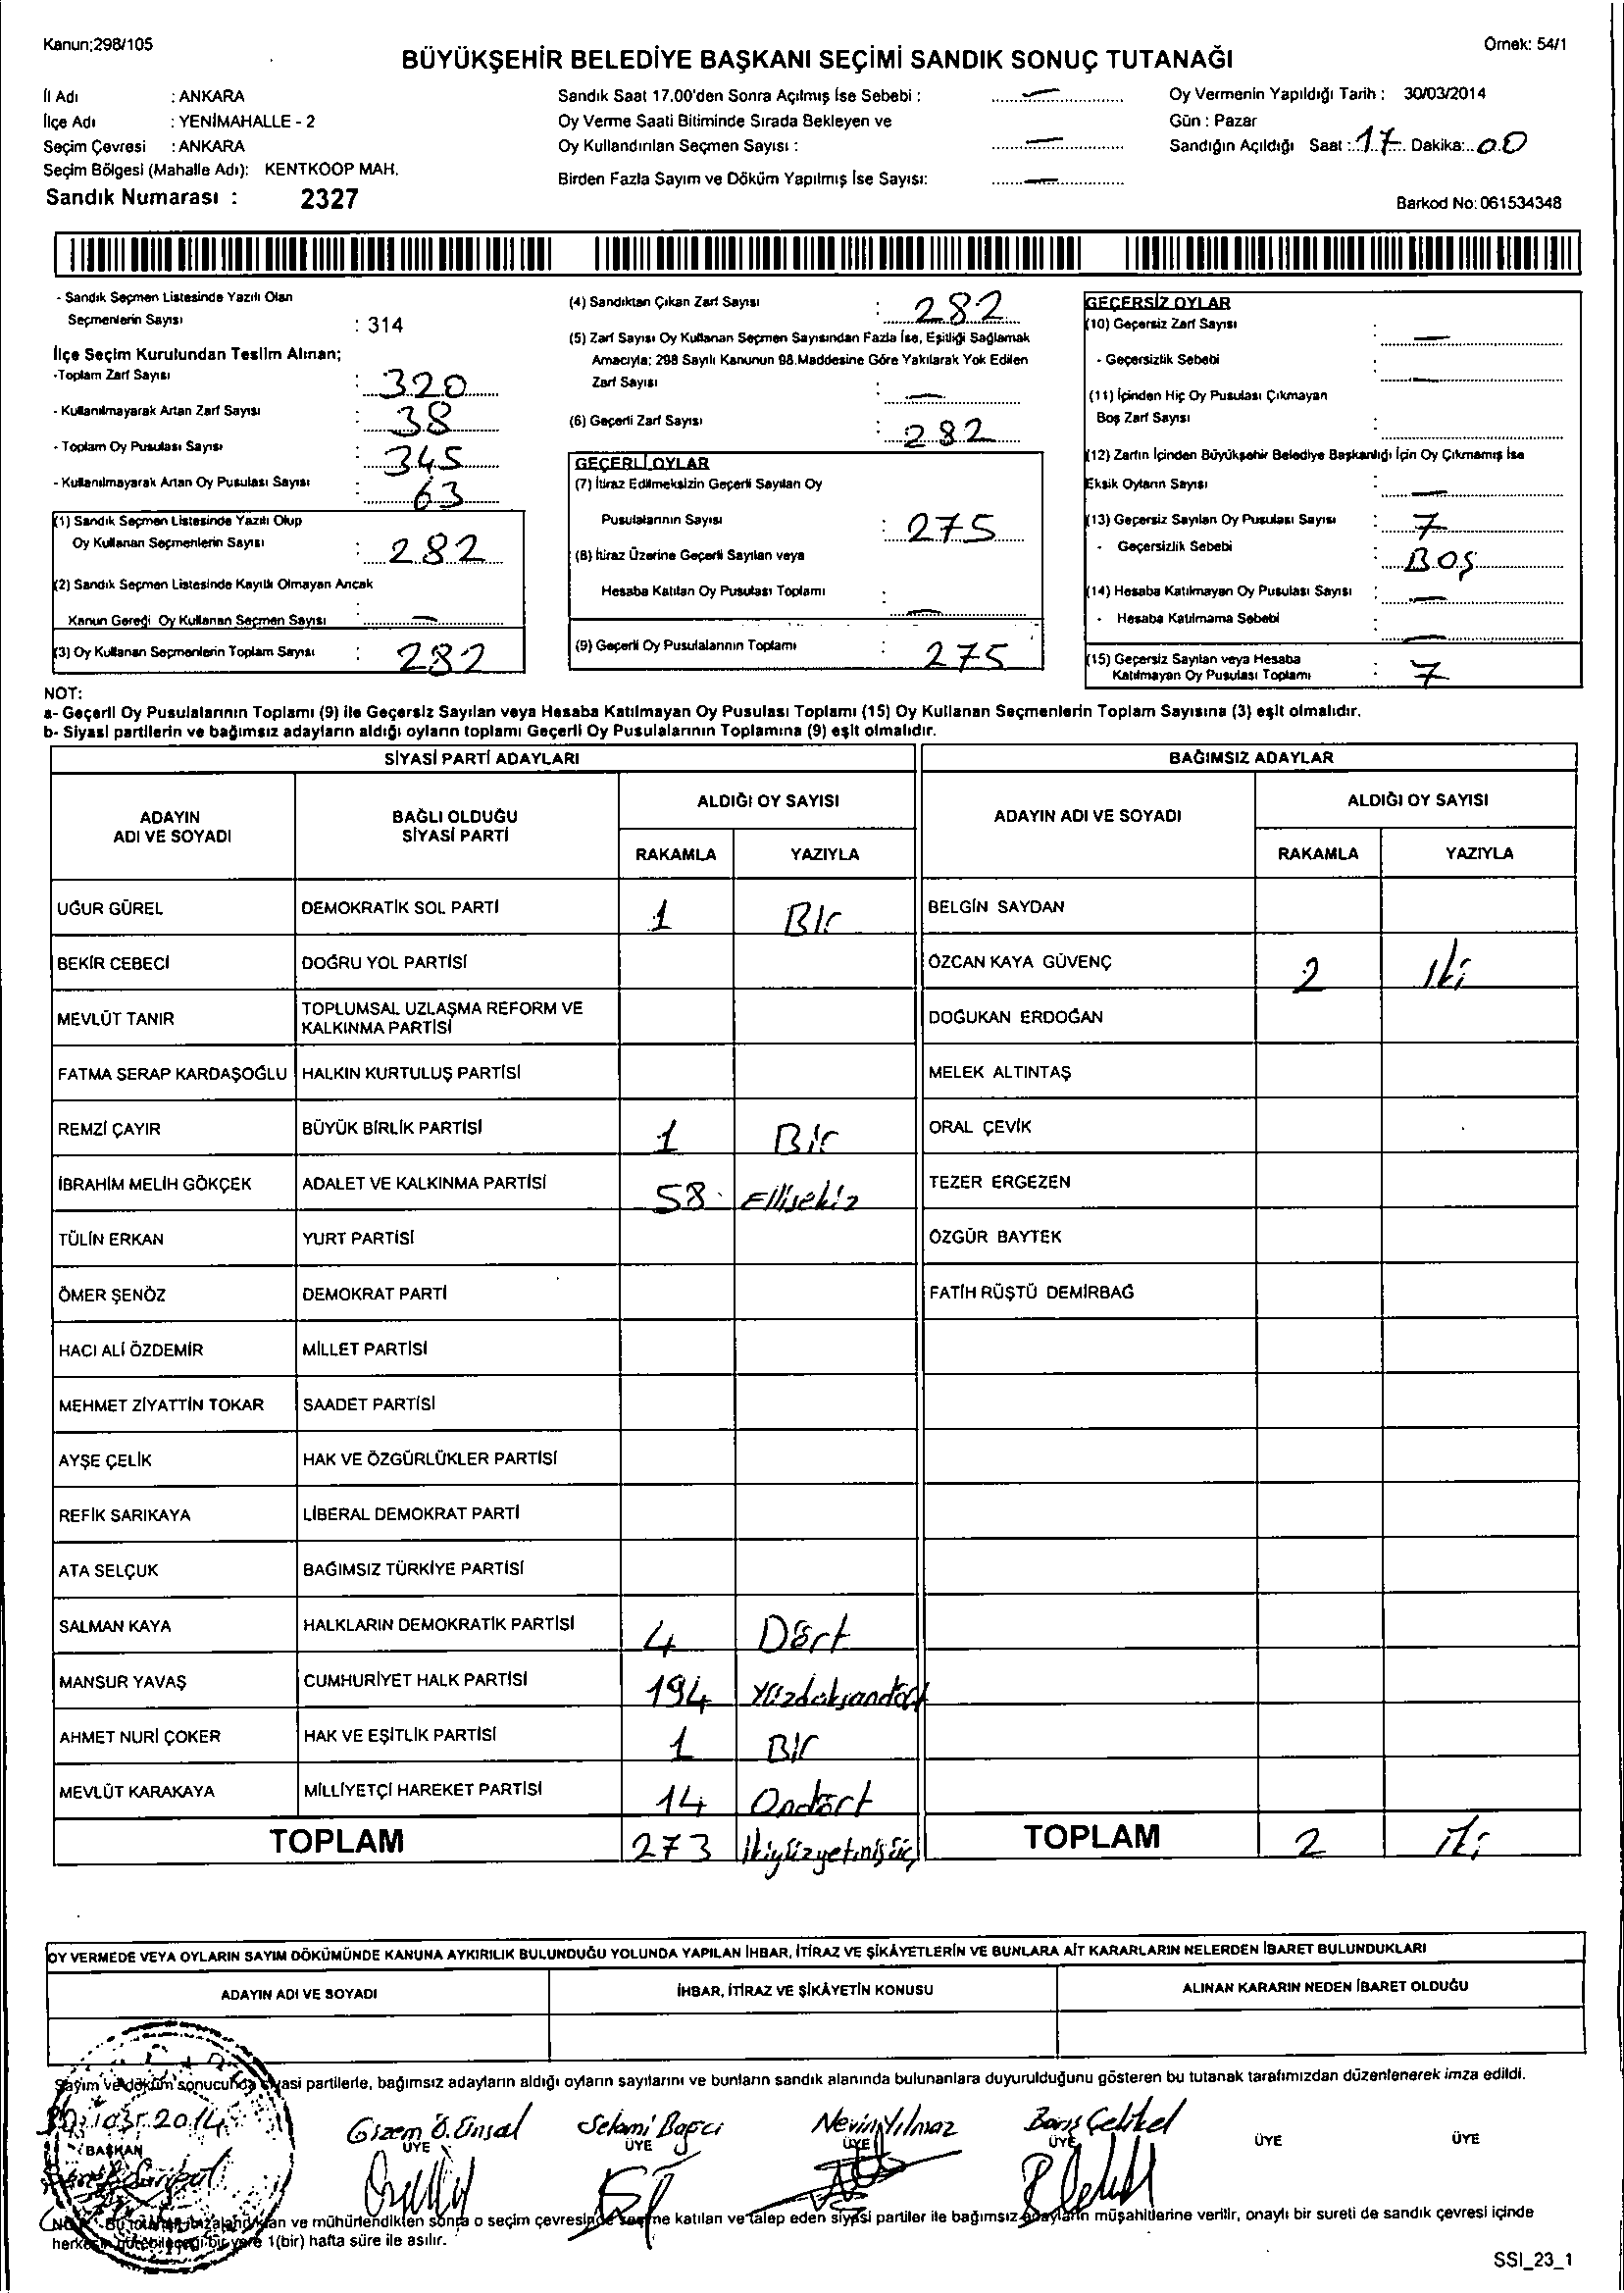 Kanun;298/105
Örnek: 54/1
BÜYÜKŞEHİR BELEDİYE BAŞKANI SEÇİMİ SANDIK SONUÇ TUTANAĞI
İl Adı : ANKARA
İlçe Adı : YENİMAHALLE - 2
Seçim Çevresi : ANKARA
Seçim Bölgesi (Mahalle Adı): KENTKOOP MAH.
Sandık Numarası : 2327
Sandık Saat 17.00'den Sonra Açılmış İse Sebebi : —
Oy Verme Saati Bitiminde Sırada Bekleyen ve
Oy Kullandırılan Seçmen Sayısı : —
Birden Fazla Sayım ve Döküm Yapılmış İse Sayısı: —
Oy Vermenin Yapıldığı Tarih : 30/03/2014
Gün : Pazar
Sandığın Açıldığı Saat : 17 Dakika: 00
Barkod No: 061534348
- Sandık Seçmen Listesinde Yazılı Olan
Seçmenlerin Sayısı : 314
İlçe Seçim Kurulundan Teslim Alınan;
-Toplam Zarf Sayısı : 320
- Kullanılmayarak Artan Zarf Sayısı : 38
- Toplam Oy Pusulası Sayısı : 345
- Kullanılmayarak Artan Oy Pusulası Sayısı : 63
(1) Sandık Seçmen Listesinde Yazılı Olup
Oy Kullanan Seçmenlerin Sayısı : 282
(2) Sandık Seçmen Listesinde Kayıtlı Olmayan Ancak
Kanun Gereği Oy Kullanan Seçmen Sayısı : —
(3) Oy Kullanan Seçmenlerin Toplam Sayısı : 282
(4) Sandıktan Çıkan Zarf Sayısı : 282
(5) Zarf Sayısı Oy Kullanan Seçmen Sayısından Fazla İse, Eşitliği Sağlamak
Amacıyla; 298 Sayılı Kanunun 98.Maddesine Göre Yakılarak Yok Edilen
Zarf Sayısı : —
(6) Geçerli Zarf Sayısı : 282
GEÇERLİ OYLAR
(7) İtiraz Edilmeksizin Geçerli Sayılan Oy
Pusulalarının Sayısı : 275
(8) İtiraz Üzerine Geçerli Sayılan veya
Hesaba Katılan Oy Pusulası Toplamı : —
(9) Geçerli Oy Pusulalarının Toplamı : 275
GEÇERSİZ OYLAR
(10) Geçersiz Zarf Sayısı : —
- Geçersizlik Sebebi : —
(11) İçinden Hiç Oy Pusulası Çıkmayan
Boş Zarf Sayısı :
(12) Zarfın İçinden Büyükşehir Belediye Başkanlığı İçin Oy Çıkmamış İse
Eksik Oyların Sayısı : —
(13) Geçersiz Sayılan Oy Pusulası Sayısı : 7
- Geçersizlik Sebebi : BOŞ
(14) Hesaba Katılmayan Oy Pusulası Sayısı : —
- Hesaba Katılmama Sebebi : —
(15) Geçersiz Sayılan veya Hesaba
Katılmayan Oy Pusulası Toplamı : 7
NOT:
a- Geçerli Oy Pusulalarının Toplamı (9) ile Geçersiz Sayılan veya Hesaba Katılmayan Oy Pusulası Toplamı (15) Oy Kullanan Seçmenlerin Toplam Sayısına (3) eşit olmalıdır.
b- Siyasi partilerin ve bağımsız adayların aldığı oyların toplamı Geçerli Oy Pusulalarının Toplamına (9) eşit olmalıdır.
SİYASİ PARTİ ADAYLARI
BAĞIMSIZ ADAYLAR
ADAYIN ADI VE SOYADI
BAĞLI OLDUĞU SİYASİ PARTİ
ALDIĞI OY SAYISI
RAKAMLA YAZIYLA
ADAYIN ADI VE SOYADI
ALDIĞI OY SAYISI
RAKAMLA YAZIYLA
UĞUR GÜREL DEMOKRATİK SOL PARTİ 1 Bir BELGİN SAYDAN
BEKİR CEBECİ DOĞRU YOL PARTİSİ ÖZCAN KAYA GÜVENÇ 2 iki
MEVLÜT TANIR TOPLUMSAL UZLAŞMA REFORM VE KALKINMA PARTİSİ DOĞUKAN ERDOĞAN
FATMA SERAP KARDAŞOĞLU HALKIN KURTULUŞ PARTİSİ MELEK ALTINTAŞ
REMZİ ÇAYIR BÜYÜK BİRLİK PARTİSİ 1 Bir ORAL ÇEVİK
İBRAHİM MELİH GÖKÇEK ADALET VE KALKINMA PARTİSİ 58 Ellisekiz TEZER ERGEZEN
TÜLİN ERKAN YURT PARTİSİ ÖZGÜR BAYTEK
ÖMER ŞENÖZ DEMOKRAT PARTİ FATİH RÜŞTÜ DEMİRBAĞ
HACI ALİ ÖZDEMİR MİLLET PARTİSİ
MEHMET ZİYATTİN TOKAR SAADET PARTİSİ
AYŞE ÇELİK HAK VE ÖZGÜRLÜKLER PARTİSİ
REFİK SARIKAYA LİBERAL DEMOKRAT PARTİ
ATA SELÇUK BAĞIMSIZ TÜRKİYE PARTİSİ
SALMAN KAYA HALKLARIN DEMOKRATİK PARTİSİ 4 Dört
MANSUR YAVAŞ CUMHURİYET HALK PARTİSİ 194 Yüzdoksandört
AHMET NURİ ÇOKER HAK VE EŞİTLİK PARTİSİ 1 Bir
MEVLÜT KARAKAYA MİLLİYETÇİ HAREKET PARTİSİ 14 Ondört
TOPLAM 273 ikiyüzyetmişüç TOPLAM 2 iki
OY VERMEDE VEYA OYLARIN SAYIM DÖKÜMÜNDE KANUNA AYKIRILIK BULUNDUĞU YOLUNDA YAPILAN İHBAR, İTİRAZ VE ŞİKÂYETLERİN VE BUNLARA AİT KARARLARIN NELERDEN İBARET BULUNDUKLARI
ADAYIN ADI VE SOYADI İHBAR, İTİRAZ VE ŞİKÂYETİN KONUSU ALINAN KARARIN NEDEN İBARET OLDUĞU
Sayım ve döküm sonucunda siyasi partilerle, bağımsız adayların aldığı oyların sayılarını ve bunların sandık alanında bulunanlara duyurulduğunu gösteren bu tutanak tarafımızdan düzenlenerek imza edildi.
Gizem Ö. Ünsal Selami Bağcı Nevin Yılmaz Barış Çelikel
BAŞKAN ÜYE ÜYE ÜYE ÜYE ÜYE ÜYE
ve mühürlendikten sonra o seçim çevresinde seçime katılan ve talep eden siyasi partiler ile bağımsız adayların müşahitlerine verilir, onaylı bir sureti de sandık çevresi içinde
1(bir) hafta süre ile asılır.
SSI_23_1